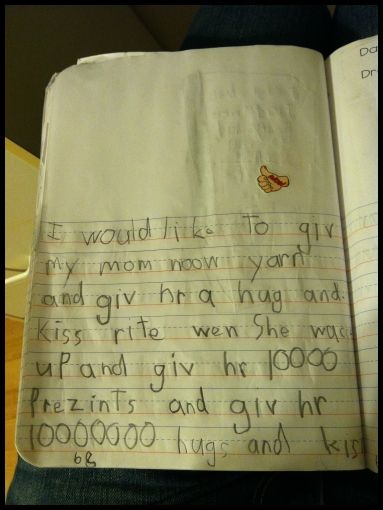 I would like To giv
my mom noow yarn
and giv hr a hug and
kiss rite wen She wace
uP and giv hr 10000
Prezints and giv hr
10000000 hugs and kis
68
Da
Dr